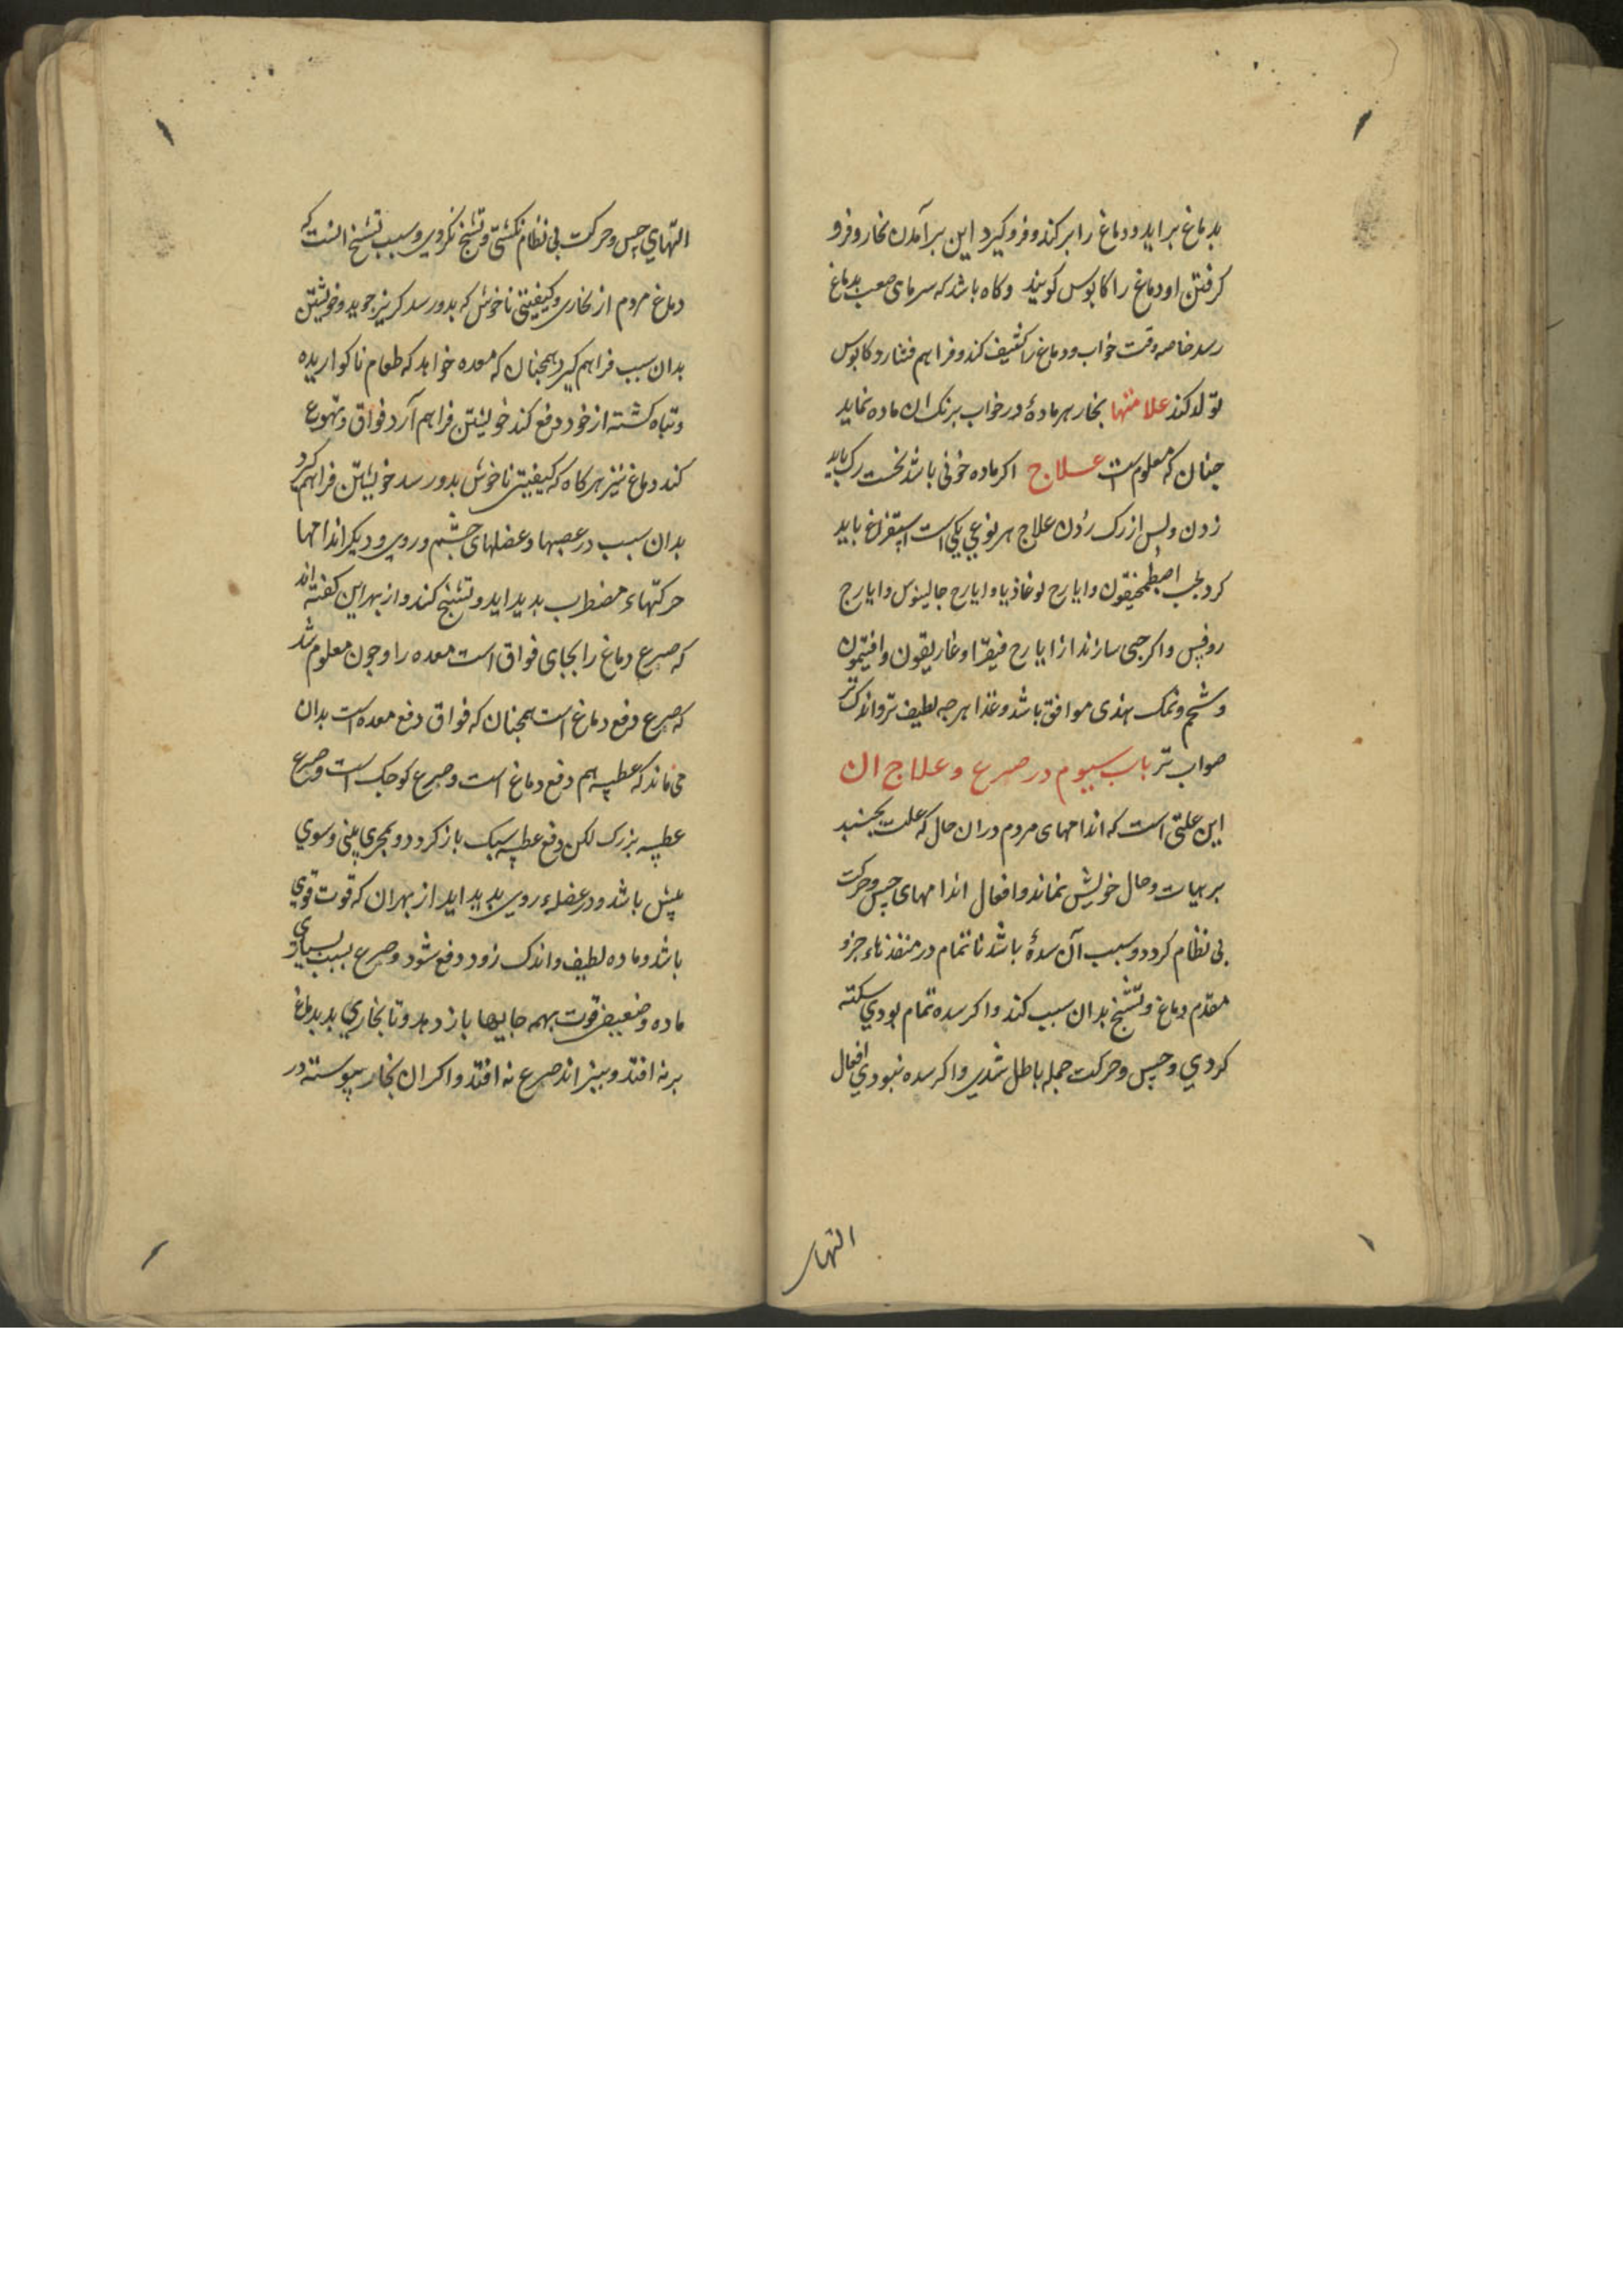 بدماغ براید ودماغ را برکند وفروکیرد این برآمدن بخار وفرو
کرفتن او دماغ را کابوس کویند وکاه باشد که سرمای صعب بدماغ
رسد خاصه وقت خواب ودماغ را کثیف کند وفراهم فشارد وکابوس
تولد کند علامتها بخار هر مادهٔ در خواب برنک ان ماده نماید
جنان که معلوم است علاج اکر ماده خونی باشد نخست رک باید
زدن وپس از رک زدن علاج هر نوعی یکی است استفراغ باید
کرد بحب اصطمخیقون وایارح لوغاذیا وایارح جالینوس وایارج
روفس واکر حبی سازند از ایارح فیقرا وغاریقون وافتیمون
وشحم ونمک هندی موافق باشد وغذا هرجه لطیف تر واندک تر
صواب تر باب سیوم در صرع وعلاج ان
این علتی است که اندامهای مردم دران حال که علت بجنبد
بر هیات وحال خویش نماند وافعال اندامهای حس وحرکت
بی نظام کردد وسبب آن سدهٔ باشد ناتمام در منفذهاء جزو
مقدم دماغ وتشنج بدان سبب کند واکر سده تمام بودی سکته
کردی وحس وحرکت جمله باطل شدی واکر سده نبودی افعال
التهای حس وحرکت بی نظام نکشتی وتشنج نکردی وسبب تشنج انست که
دماغ مردم از بخاری وکیفیتی ناخوش که بدو رسد کریز جوید وخویشتن
بدان سبب فراهم کیرد همجنان که معده خواهد که طعام ناکواریده
وتباه کشته از خود دفع کند خویشتن فراهم آرد فواق وتهوع
کند دماغ نیز هرکاه که کیفیتی ناخوش بدو رسد خویشتن فراهم کیرد
بدان سبب در عصبها وعضلهای چشم وروی ودیکر اندامها
حرکتهاء مضطرب بدید اید وتشنج کند واز بهر این کفته اند
که صرع دماغ را بجای فواق است معده را وجون معلوم شد
که صرع دفع دماغ است همجنان که فواق دفع معده است بدان
می ماند که عطسه هم دفع دماغ است وصرع کوجک است وصرع
عطسه بزرک لکن دفع عطسه سبک باز کردد وبمجری بینی وسوی
پیش باشد ودر عضلهء روی بدید اید از بهر ان که قوت قوی
باشد وماده لطیف واندک زود دفع شود وصرع بسبب بسیاری
ماده وضعیفی قوت بهمه جایها باز دهد وتا بخاری بد بدماغ
بر نه افتد صرع نه افتد واکر ان بخار پیوسته در